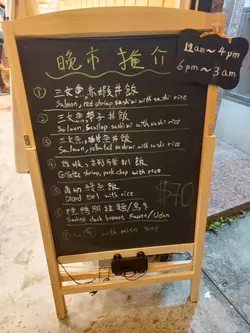 晚市推介
12am~4pm
6pm~3am
① 三文魚赤蝦丼飯
Salmon, red shrimp sashimi with sushi rice
② 三文魚帶子丼飯
Salmon, Scallop sashimi with sushi rice
③ 三文魚
Salmon, sashimi with sushi rice
④ 飯
shrimp, pork chop with rice
⑤ 飯
eel with rice
$70
⑥ /烏冬
Smoked duck breast Ramen/Udon
①~⑥ with miso soup